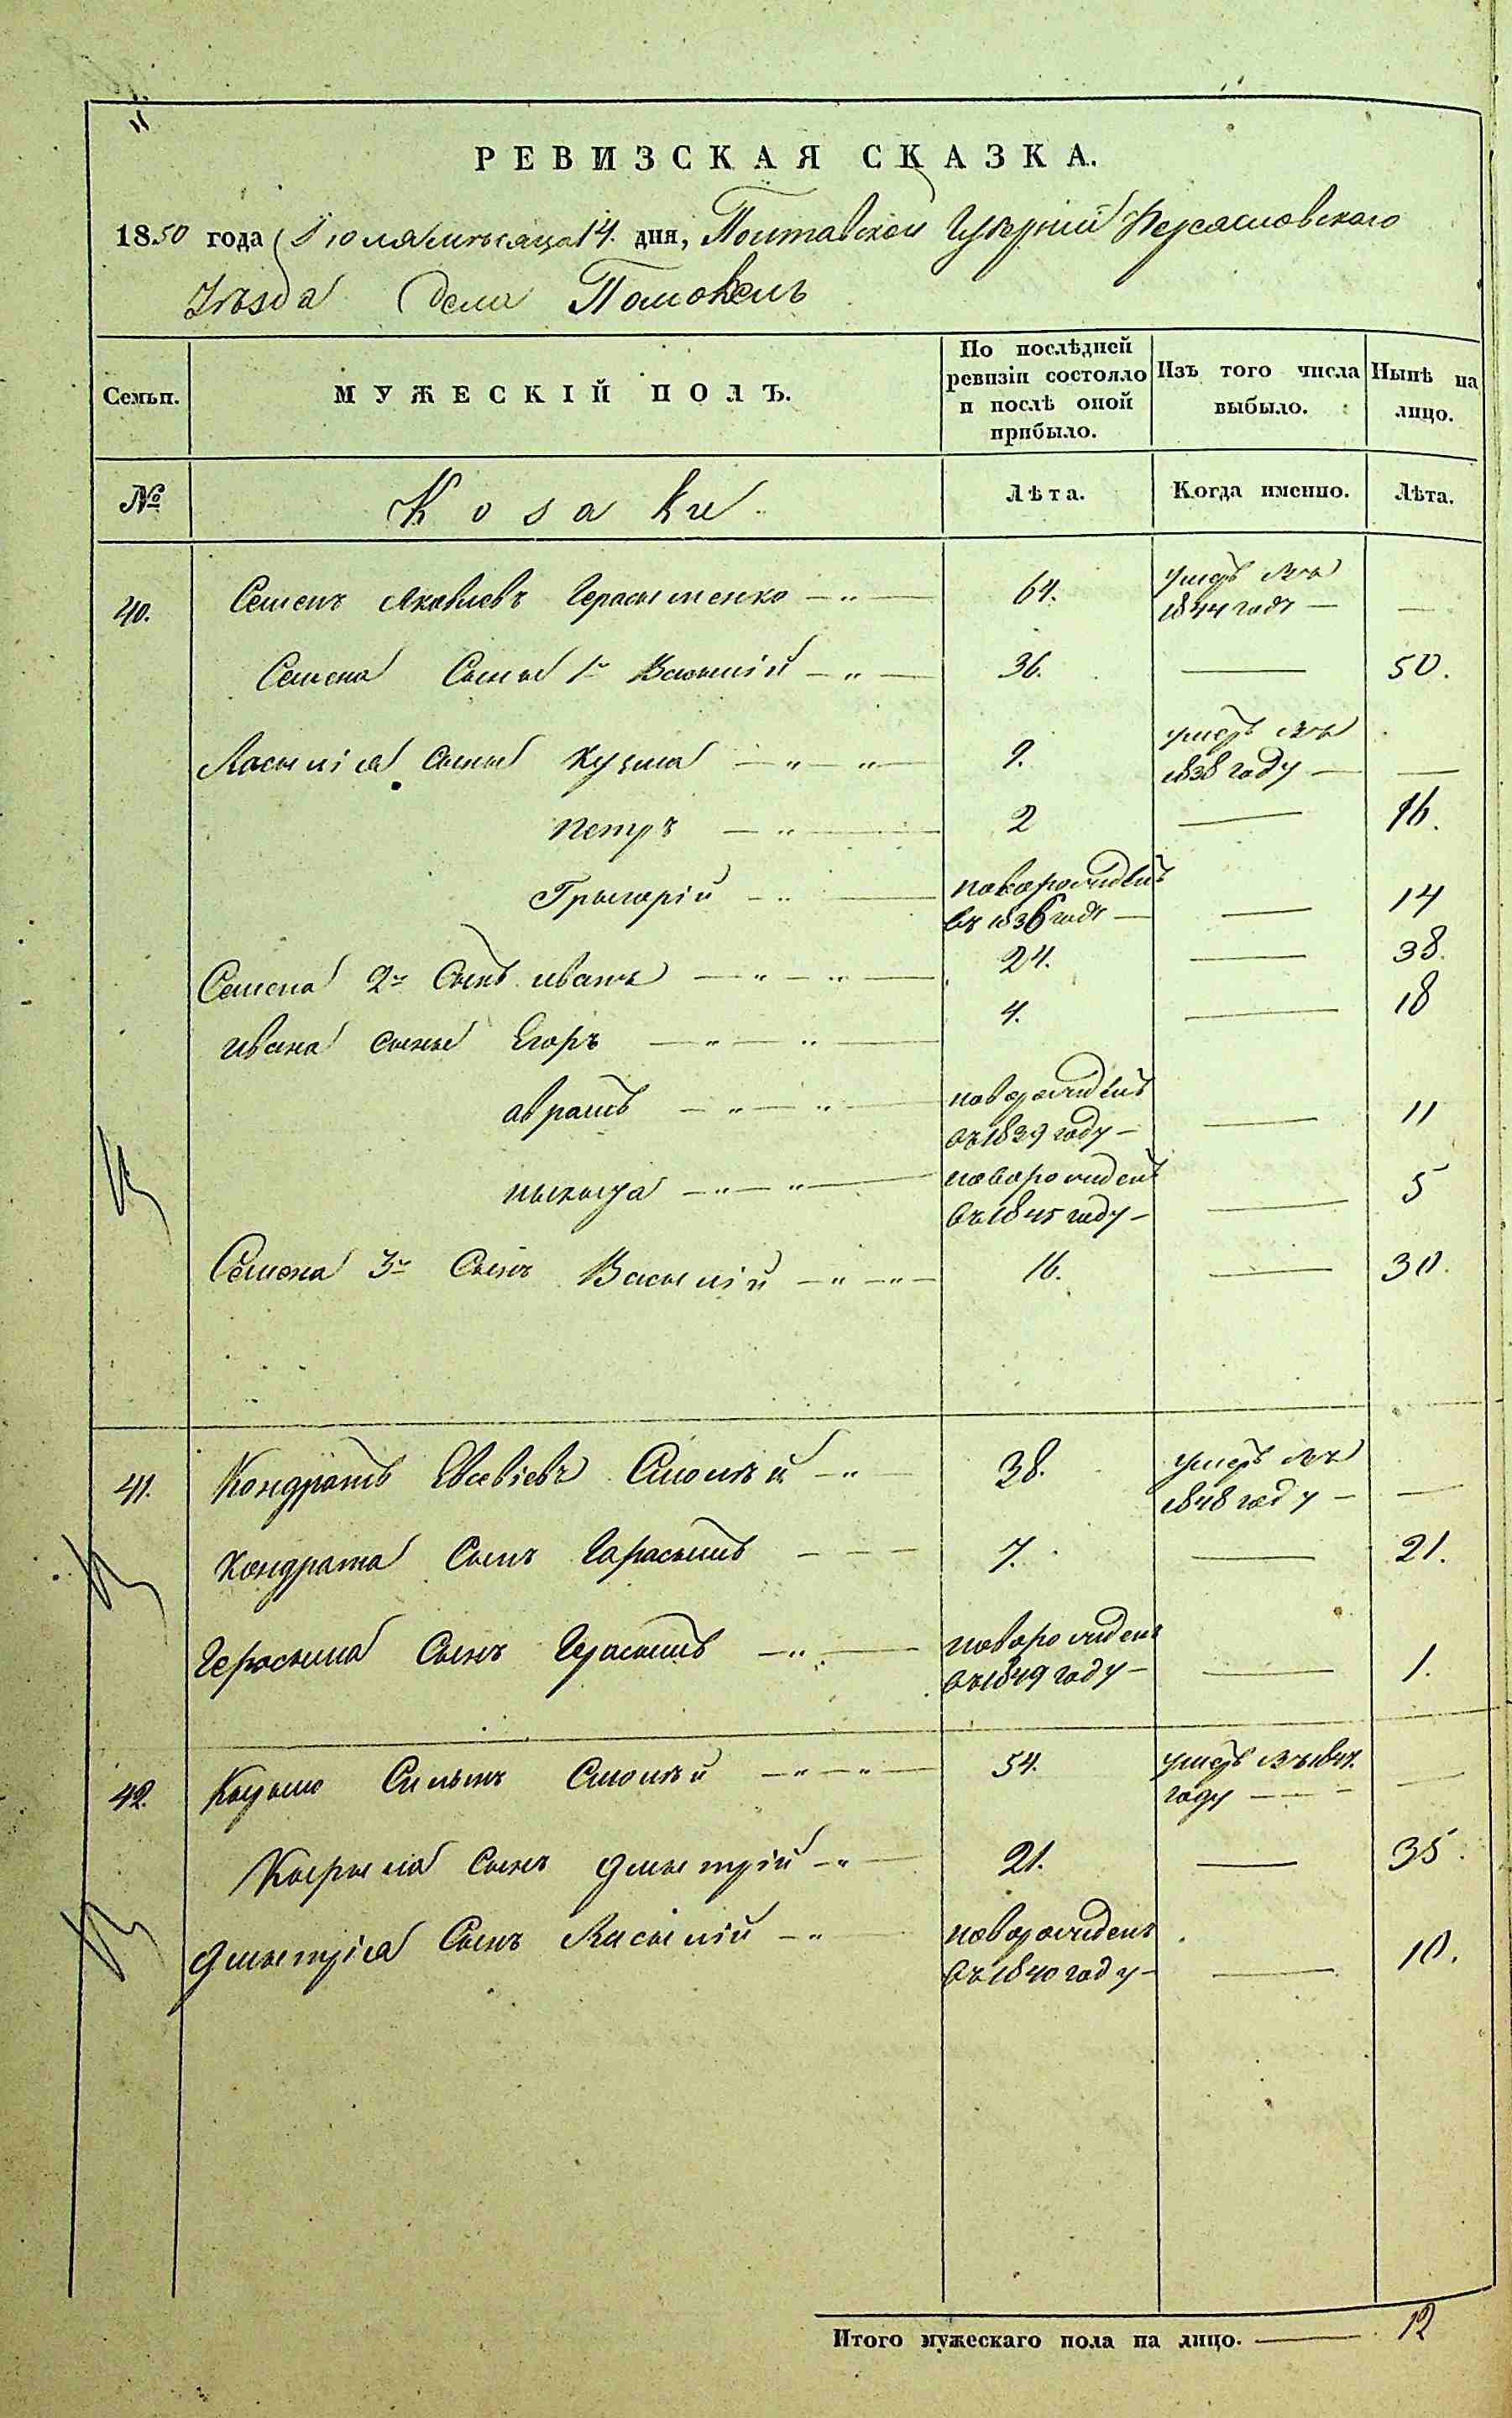 РЕВИЗСКАЯ СКАЗКА.
1850 года Іюля месяца 14. дня, Полтавской Губерніи Переясловского
Уезда Села Помоклъ
Семьи. МУЖЕСКІЙ ПОЛЪ. По послѣдней ревизіи состояло и послѣ оной прибыло. Изъ того числа выбыло. Нынѣ на лицо.
№ Козаки Лѣта. Когда именно. Лѣта.
40. Семенъ Яковлевъ Герасыменко — " — 64. умеръ въ 1844 годѣ — —
Семена Сыны 1й Васылій — " — 36. — 50.
Васыліа сыны Кузма — " — " — 9. умеръ въ 1838 году — —
Петръ — " — 2 — 16.
Грыгорій — " — новорожденъ въ 1836 годѣ — — 14
Семена 2й Сынъ иванъ — " — " — 24. — 38.
ивана сыны Егоръ — " — " — 4. — 18
аврамъ — " — " — новорожденъ въ 1839 году — — 11
ныкыта — " — " — новорожденъ въ 1845 году — — 5
Семена 3й Сынъ Васылій — " — " — 16. — 30.
41. Кондратъ Евсевіевъ Смолѣй — " — 38. умеръ въ 1848 году — —
Кондрата Сынъ Гарасымъ — — — 7. — 21.
Герасыма Сынъ Герасымъ — " — новорожденъ въ 1849 году — — 1.
42. Кырыло Смолѣй — " — " — 54. умеръ въ 184 году — — —
Кырыла сынъ Дмытрій — " — 21. — 35.
Дмытріа Сынъ Васылій — " — новорожденъ въ 1840 году — — 10.
Итого мужескаго пола на лицо. — 12